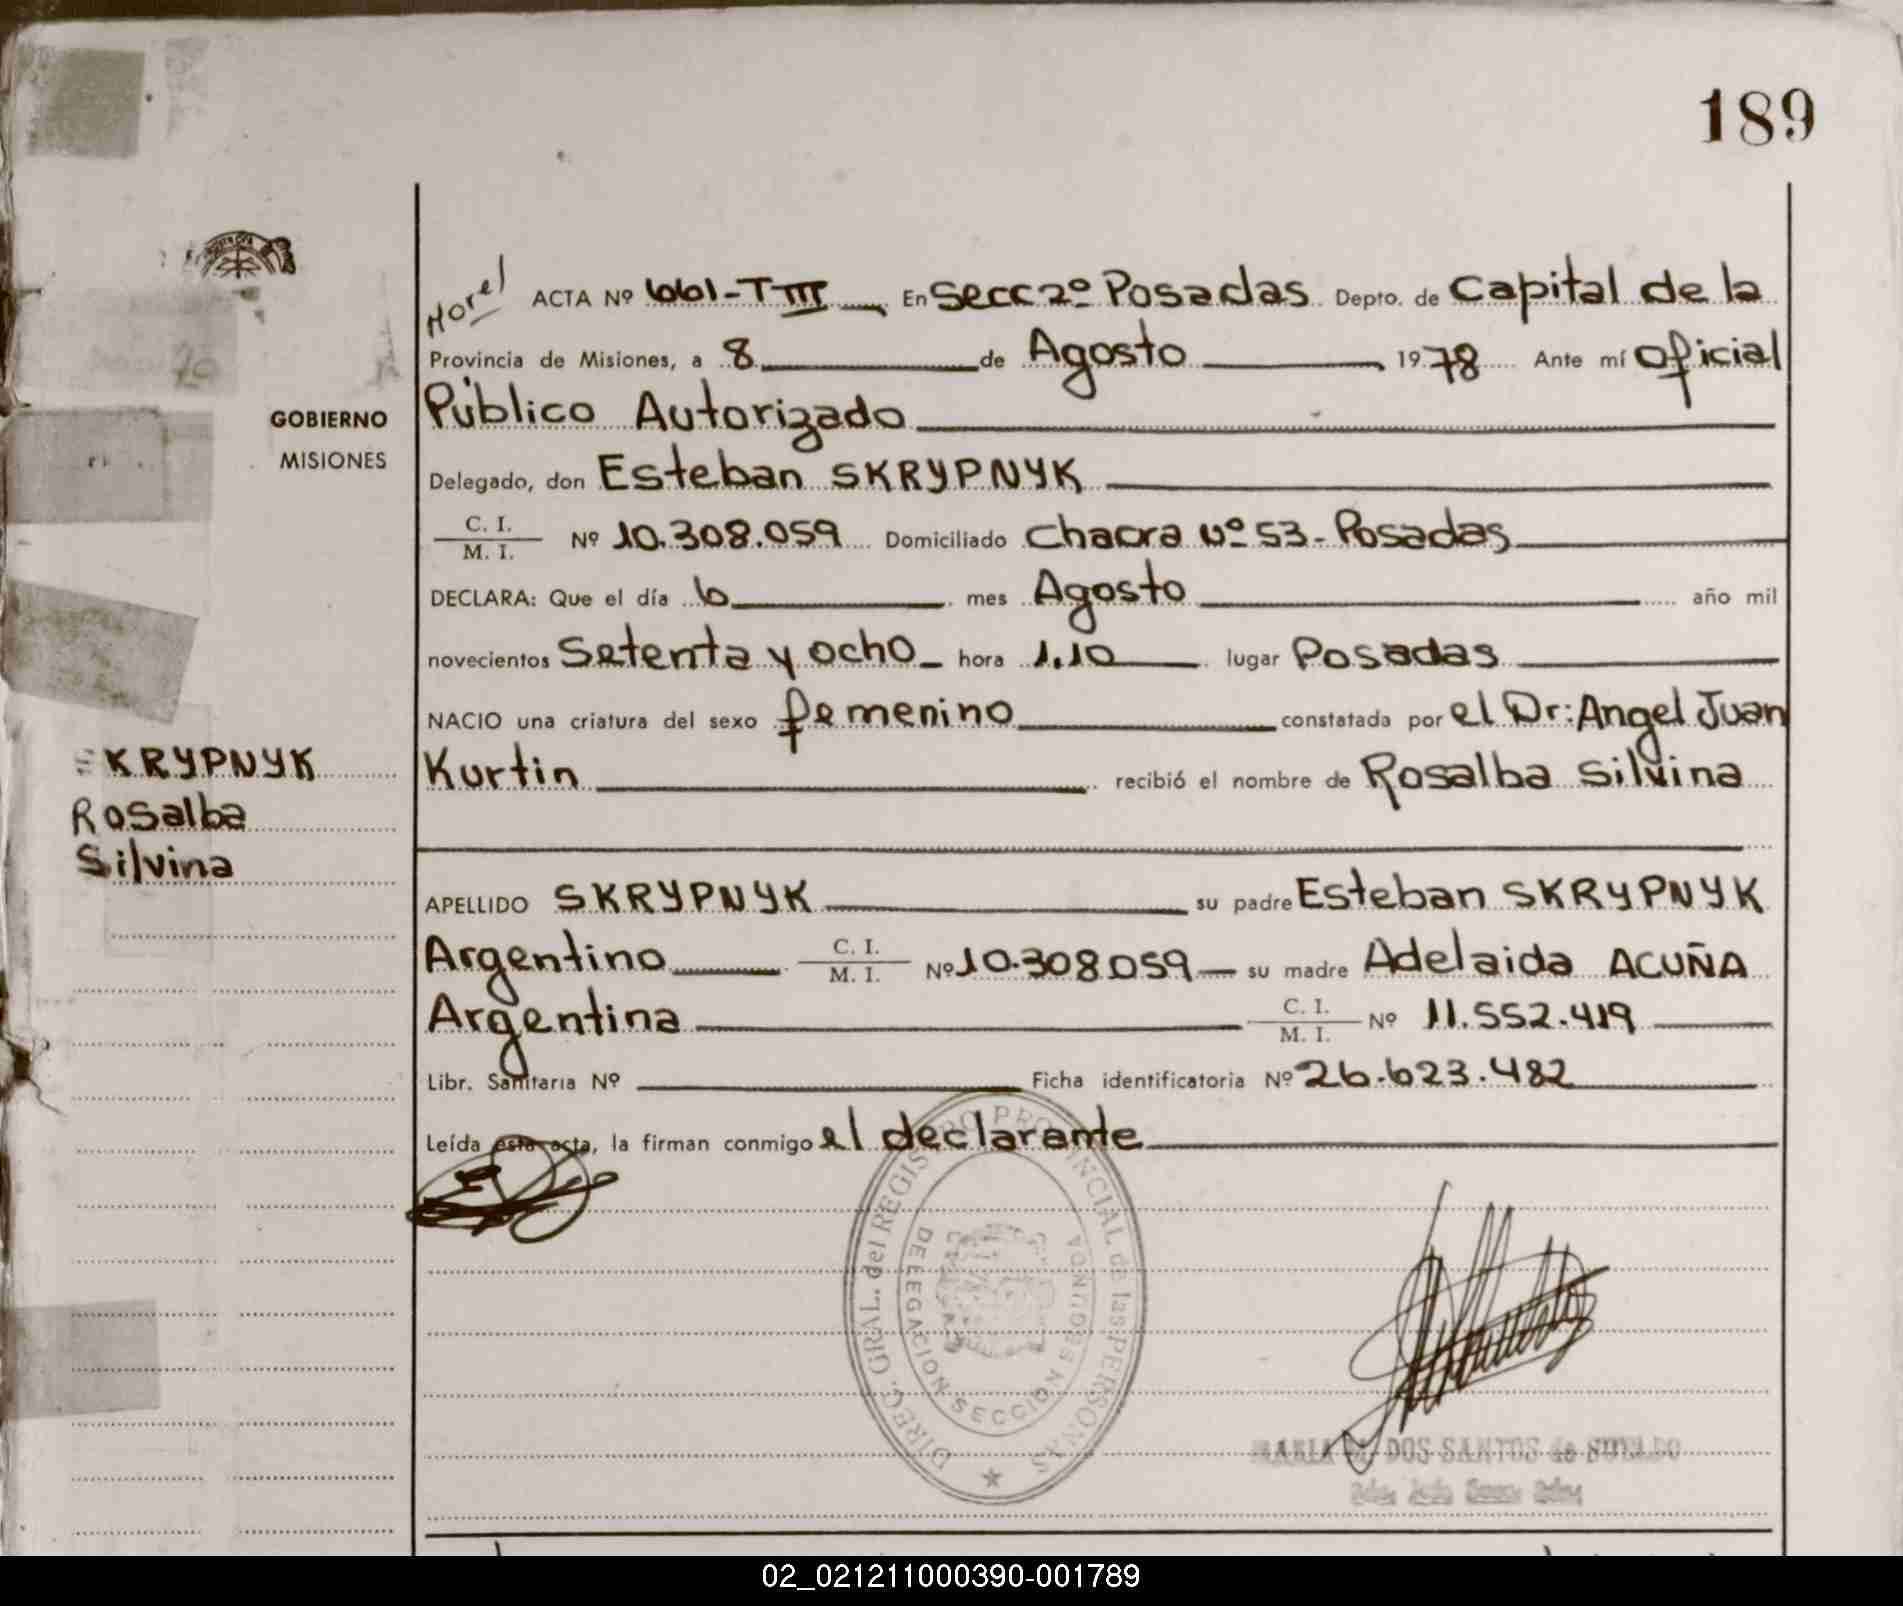 189
Morel ACTA Nº 661-T III En Secc 2º Posadas Depto. de Capital de la
Provincia de Misiones, a 8 de Agosto 1978 Ante mí Oficial
GOBIERNO
MISIONES
Público Autorizado
Delegado, don Esteban SKRYPNYK
C. I.
M. I. Nº 10.308.059 Domiciliado Chacra Nº 53 - Posadas
DECLARA: Que el día 6 mes Agosto año mil
novecientos Setenta y ocho hora 1.10 lugar Posadas
NACIO una criatura del sexo femenino constatada por el Dr: Angel Juan
Kurtin recibió el nombre de Rosalba Silvina
SKRYPNYK
Rosalba
Silvina
APELLIDO SKRYPNYK su padre Esteban SKRYPNYK
Argentino C. I. M. I. Nº 10.308.059 su madre Adelaida ACUÑA
Argentina C. I. M. I. Nº 11.552.419
Libr. Sanitaria Nº Ficha identificatoria Nº 26.623.482
Leída esta acta, la firman conmigo el declarante
DIREC. GRAL. del REGISTRO PROVINCIAL de las PERSONAS
DELEGACION SECCION SEGUNDA
MARIA DOS SANTOS de SOTELO
02_021211000390-001789